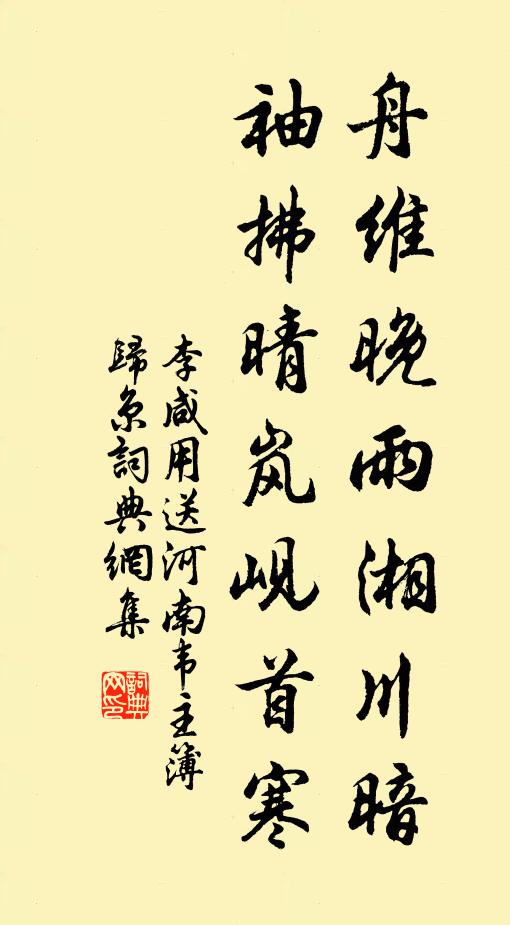 舟维晚雨湘川暗
袖拂晴岚岘首寒
李咸用送河南韦主簿
歸京詞典網集
詞典
网印